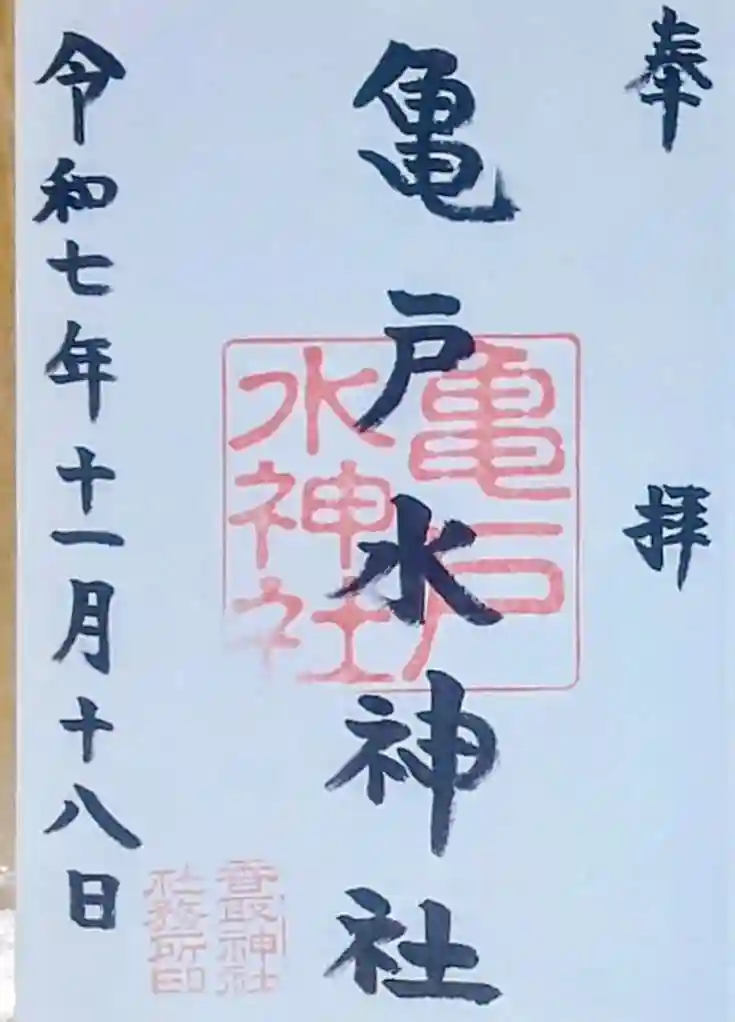 奉拝
亀戸水神社
亀戸
水神社
令和七年十一月十八日
香取神社
社務所印